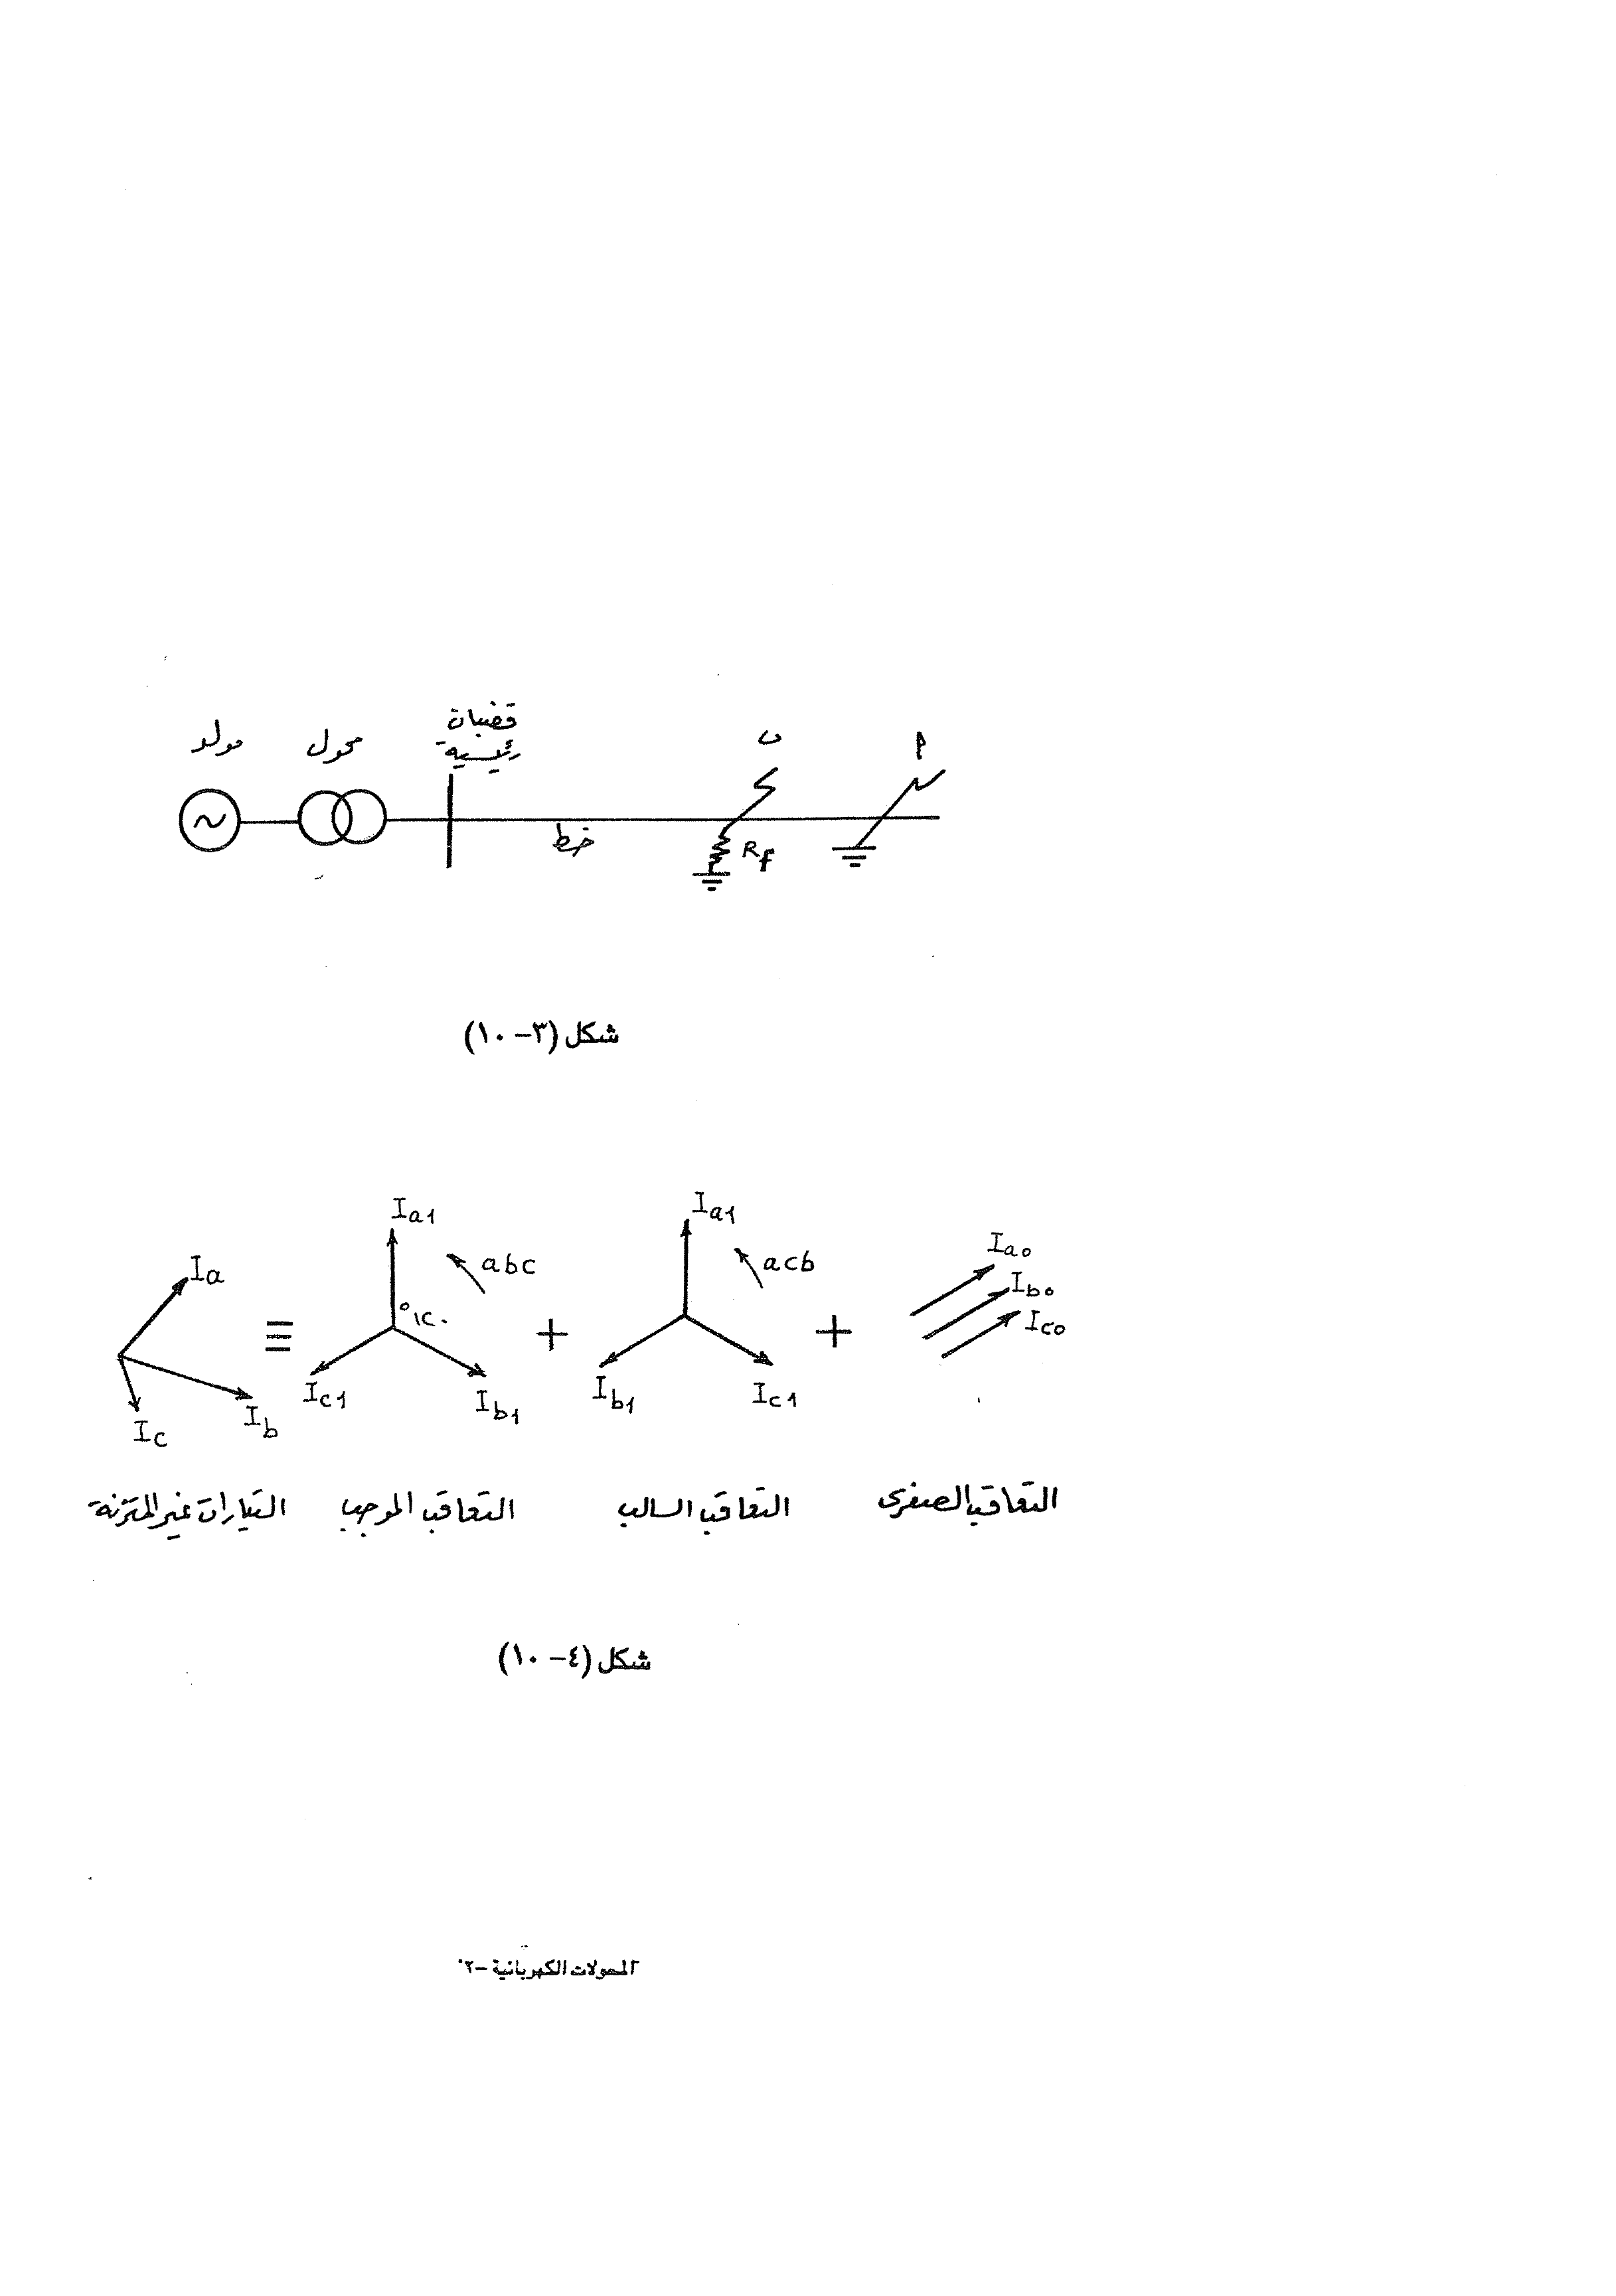 مولد
محول
قضبان
رئيسية
خط
Rf
ب
أ
شكل (٣-١٠)
Ia
Ib
Ic
≡
Ia1
abc
°١٢٠
Ic1
Ib1
+
Ia1
acb
Ib1
Ic1
+
Iao
Ibo
Ico
التيارات غير المتزنة
التعاقب الموجب
التعاقب السالب
التعاقب الصفرى
شكل (٤-١٠)
المحولات الكهربائية -٢٠